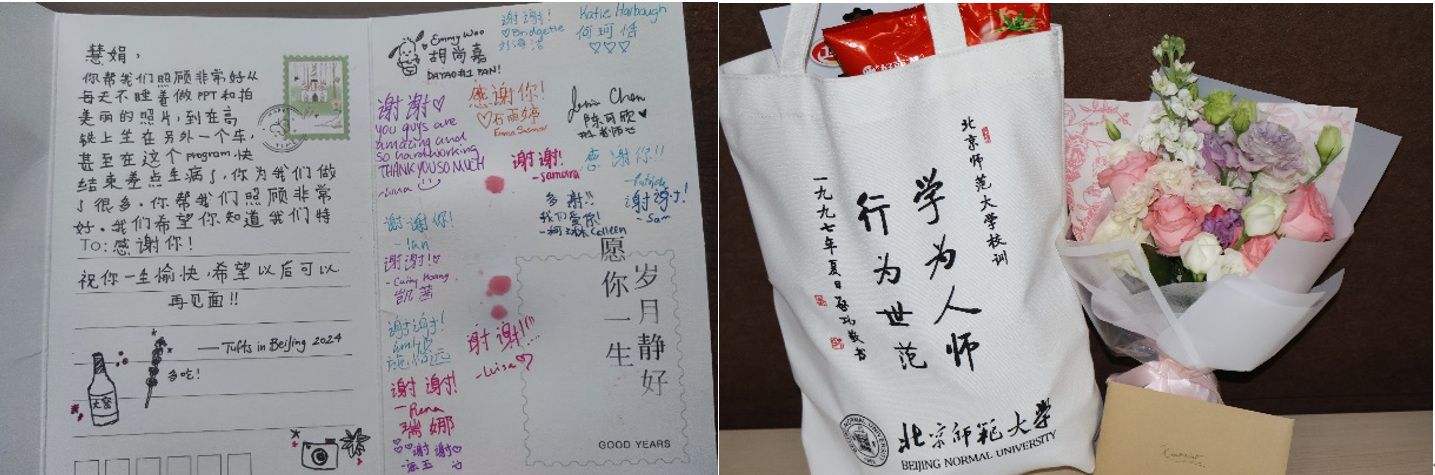 慧娟,
你帮我们照顾非常好从
每天不睡着做PPT和拍
美丽的照片,到在高
铁上坐在另外一个车,
甚至在这个program快
结束差点生病了,你为我们做
了很多,你帮我们照顾非常
好。我们希望你知道我们特
To:感谢你!
祝你一生愉快,希望以后可以
再见面!!
—Tufts in Beijing 2024
多吃!
大窑
Emmy Woo
胡尚嘉
谢谢!
♡Bridgette
Katie Harbaugh
何珂恬
♡♡♡
谢谢♡
you guys are
amazing and
so hardworking
THANK YOU SO MUCH
-Luna
感谢你!
♡石雨婷
Chen
陈可欣
谢谢!
-Samara
感谢你!!
谢谢!
-Sam
多谢!!
我们爱你!
Colleen
谢谢你!
-Ian
谢谢!♡
凯茜
谢谢!
谢谢!!!
-Luisa♡
谢谢!
-Rena
瑞娜
谢谢
愿你一生
岁月静好
GOOD YEARS
北京师范大学校训
学为人师
行为世范
一九九七年夏日启功敬书
北京师范大学
BEIJING NORMAL UNIVERSITY